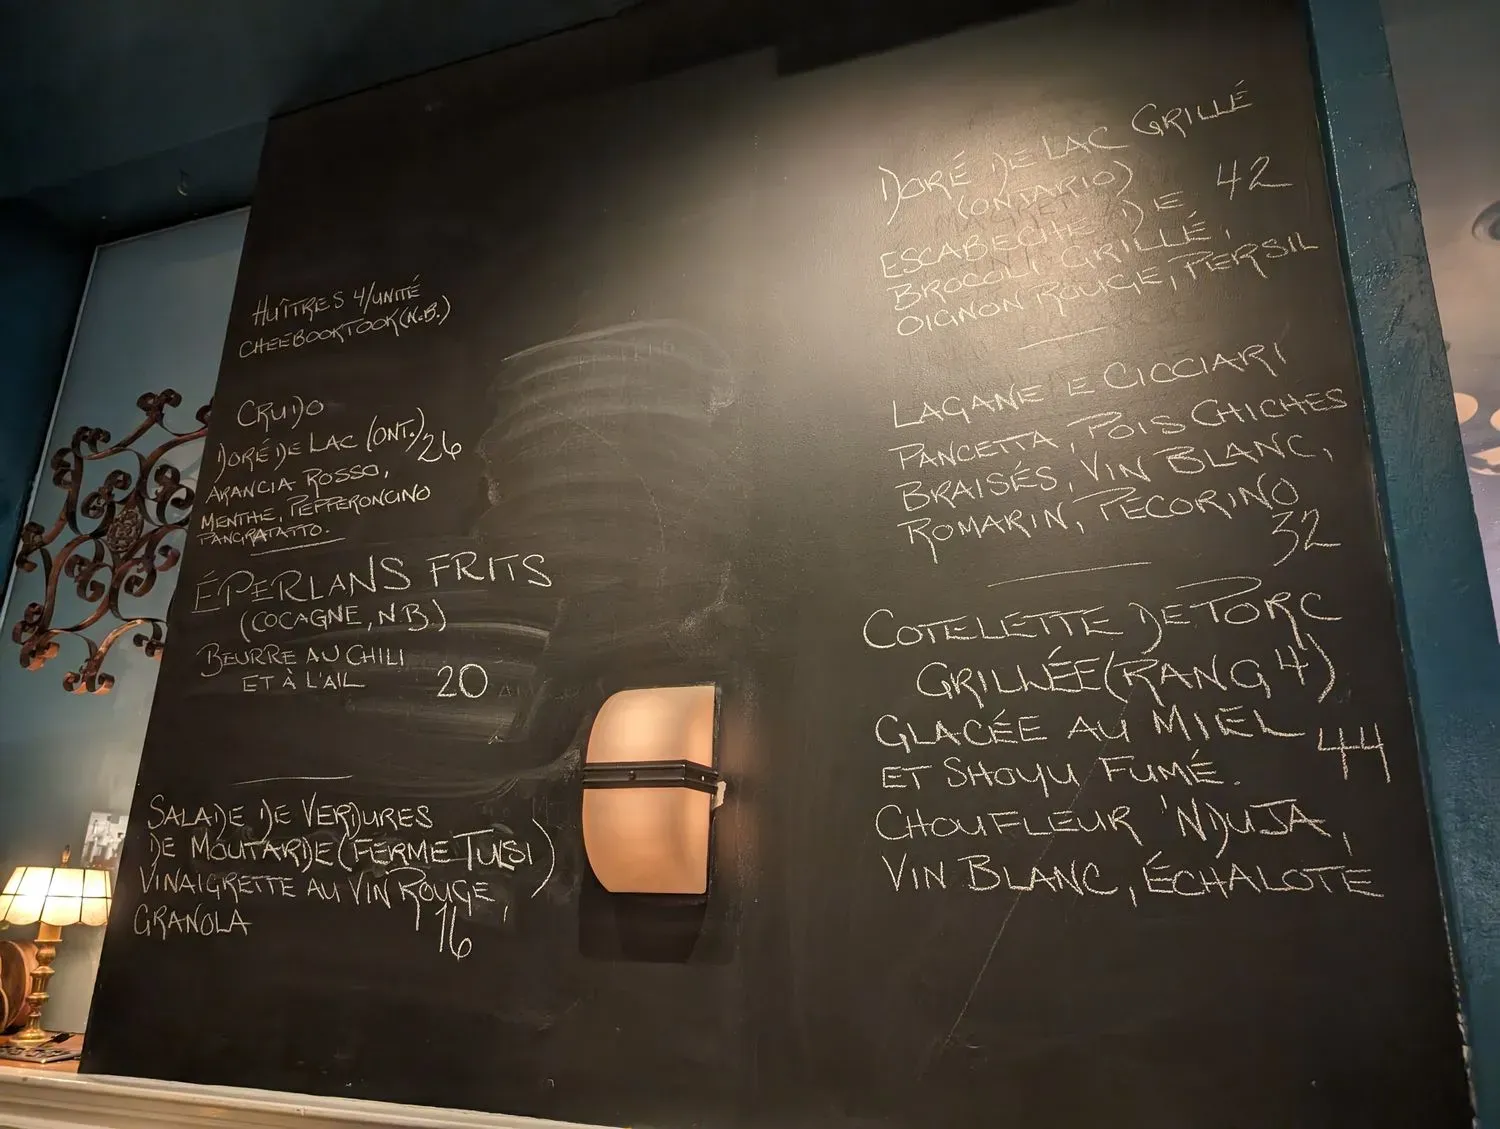 HUÎTRES 4/UNITÉ
CHEEBOOKTOOK (N.B.)
CRUDO
DORÉ DE LAC (ONT.) 26
ARANCIA ROSSO,
MENTHE, PEPPERONCINO
PANGRATATTO.
ÉPERLANS FRITS
(COCAGNE, N.B.)
BEURRE AU CHILI
ET À L'AIL 20
SALADE DE VERDURES
DE MOUTARDE (FERME TULSI)
VINAIGRETTE AU VIN ROUGE,
GRANOLA 16
DORÉ DE LAC GRILLÉ
(ONTARIO) 42
ESCABECHE DE
BROCOLI GRILLÉ,
OIGNON ROUGE, PERSIL
LAGANE E CICCIARI
PANCETTA, POIS CHICHES
BRAISÉS, VIN BLANC,
ROMARIN, PECORINO
32
COTELETTE DE PORC
GRILLÉE (RANG 4)
GLACÉE AU MIEL 44
ET SHOYU FUMÉ.
CHOUFLEUR 'NDUJA,
VIN BLANC, ÉCHALOTE